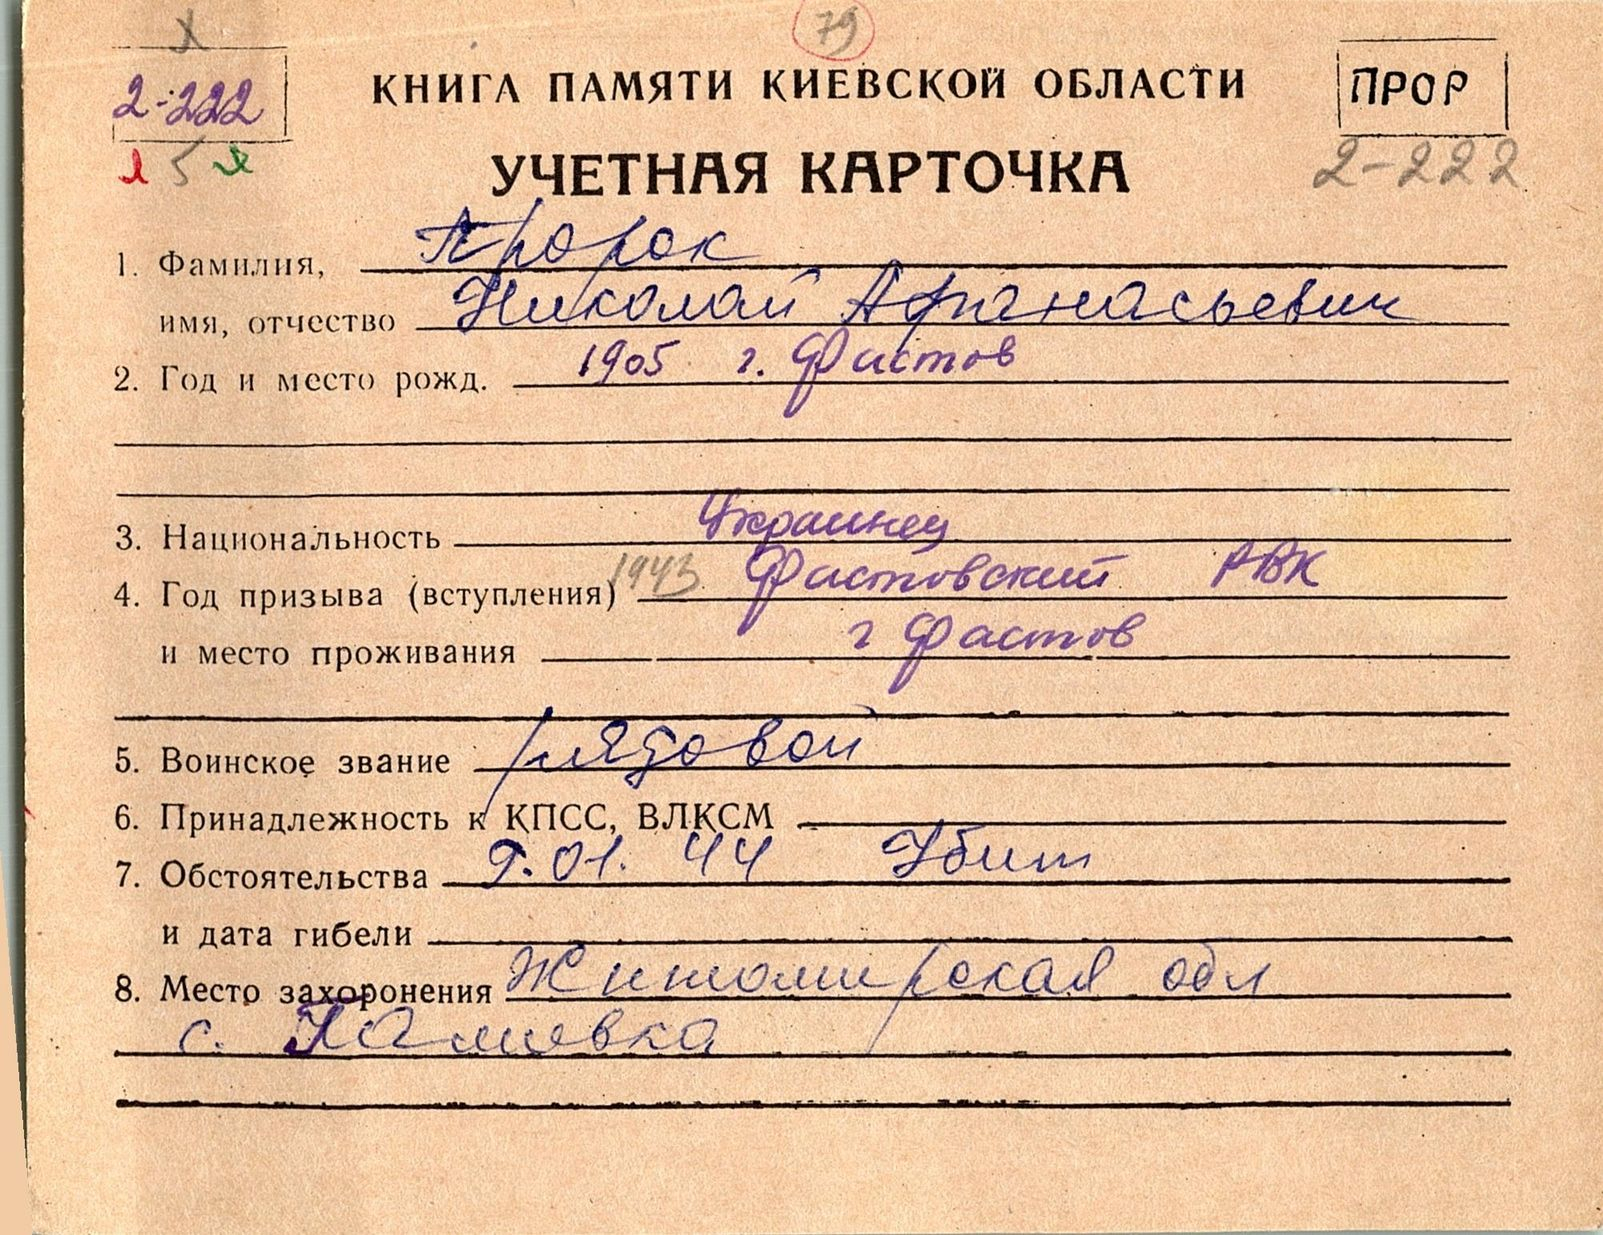 х
79
2-222
КНИГА ПАМЯТИ КИЕВСКОЙ ОБЛАСТИ
ПРОР
5
УЧЕТНАЯ КАРТОЧКА
2-222
1. Фамилия, Пророк
имя, отчество Николай Афанасьевич
2. Год и место рожд. 1905 г. Фастов
3. Национальность Украинец
4. Год призыва (вступления) 1943 Фастовский РВК
и место проживания г Фастов
5. Воинское звание рядовой
6. Принадлежность к КПСС, ВЛКСМ
7. Обстоятельства 9.01. 44 Убит
и дата гибели
8. Место захоронения Житомирская обл
с.